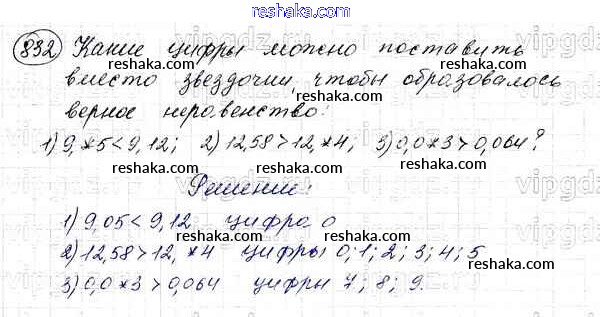 reshaka.com
832 Какие цифры можно поставить
вместо звездочки, чтобы образовалось
верное неравенство:
1) 9,*5 < 9,12; 2) 12,58 > 12,*4; 3) 0,0*3 > 0,064?
reshaka.com
reshaka.com
reshaka.com
Решение:
1) 9,05 < 9,12 цифра 0
2) 12,58 > 12,*4 цифры 0; 1; 2; 3; 4; 5
3) 0,0*3 > 0,064 цифры 7; 8; 9.
reshaka.com
reshaka.com
reshaka.com